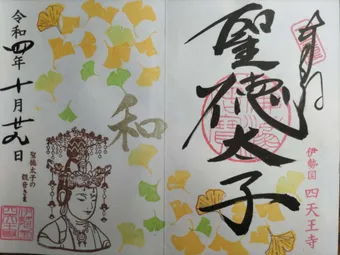 奉拝
聖徳太子
伊勢国 四天王寺
和
令和四年十月廿九日
聖徳太子の
観音さま